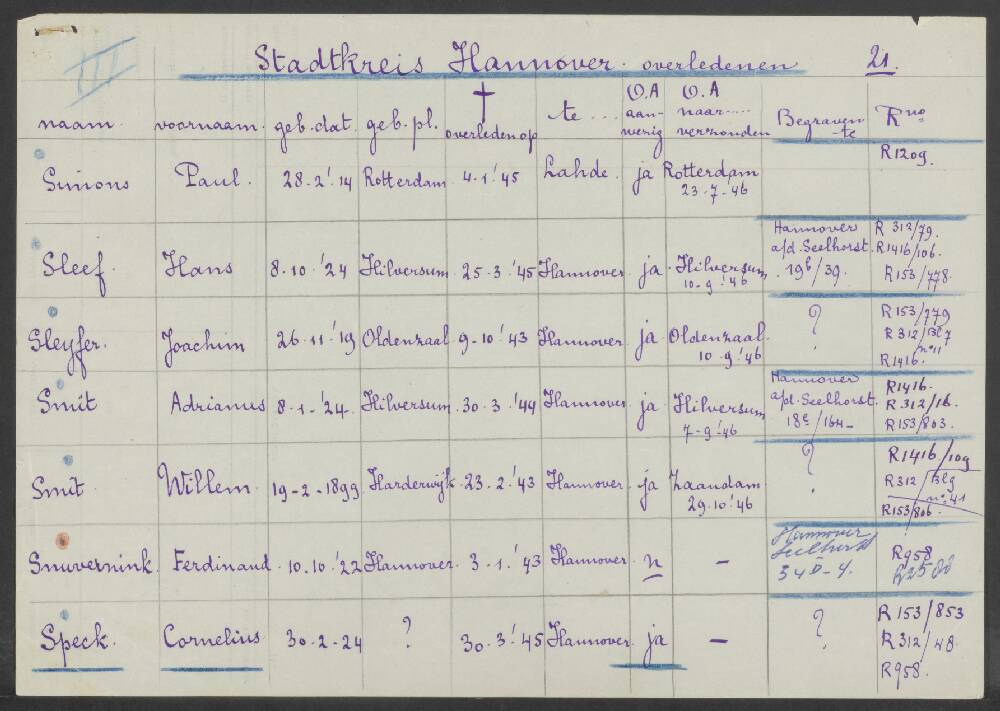 III
Stadtkreis Hannover. overledenen 21.
naam. voornaam. geb. dat. geb. pl. † overleden op te .... O.A aan-wezig O.A naar..... verzonden Begraven te R no
Simons Paul. 28.2.'14 Rotterdam 4.1.'45 Lahde. ja Rotterdam 23.7.'46 R1209.
Sleef. Hans 8.10.'24 Hilversum 25.3.'45 Hannover ja. Hilversum 10-9.'46 Hannover a/d. Seelhorst. 19b/39. R 312/79. R1416/106. R153/778.
Sleyfer. Joachim 26.11.'19 Oldenzaal 9-10.'43 Hannover. ja. Oldenzaal. 10.9.'46 ? R153/779 R312/Bl7 no 11 R1416.
Smit Adrianus 8.1.'24. Hilversum. 30.3.'44 Hannover. ja Hilversum 7-9.'46 Hannover a/d. Seelhorst. 18e/164- R1416. R312/16. R153/803.
Smit Willem. 19-2-1899 Harderwijk. 23.2.'43 Hannover. ja Zaandam 29.10.'46 ? R1416/109 R312/Blg no. 41 R153/806.
Snuvernink. Ferdinand. 10.10.'22 Hannover. 3.1.'43 Hannover. n - Hannover Seelhorst 34D-4. R958.
Speck. Cornelius 30-2-24 ? 30.3.'45 Hannover. ja - ? R153/853 R312/48. R958.